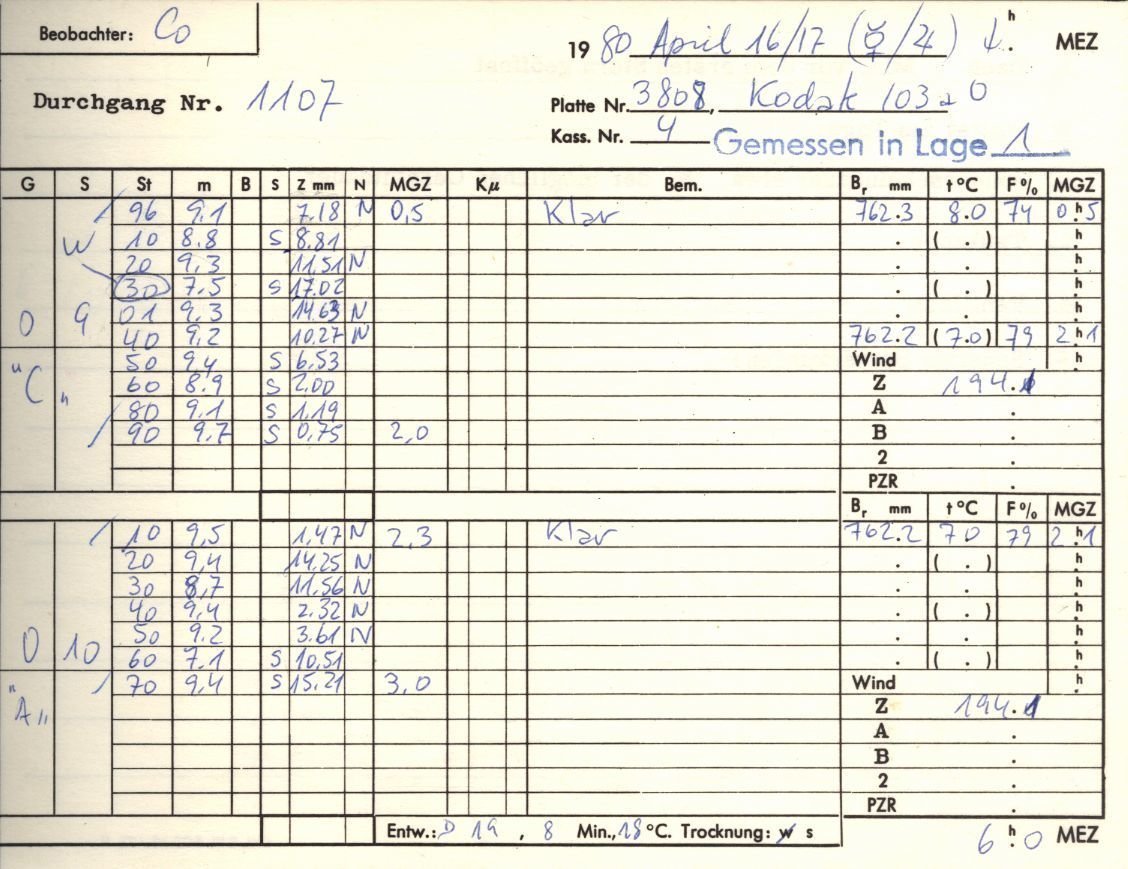 Beobachter: Co
19 80 April 16/17 (☿/♃) ↓ h. MEZ
Durchgang Nr. 1107
Platte Nr. 3808, Kodak 103a O
Kass. Nr. 4 Gemessen in Lage 1
G S St m B S Z mm N MGZ Kμ Bem. Br mm t°C F% MGZ
96 9.1 7.18 N 0,5 Klar 762.3 8.0 74 0h.5
W 10 8.8 S 8.81 . ( . ) h.
20 9,3 11.51 N . . h.
30 7.5 S 17.02 . ( . ) h.
01 9.3 14.63 N . . h.
0 9 40 9.2 10.27 N 762.2 (7.0) 79 2h.1
"C" 50 9,4 S 6.53 Wind h.
60 8.9 S 2.00 Z 194.1
80 9.1 S 1.19 A .
90 9.7 S 0,75 2,0 B .
2 .
PZR .
Br mm t°C F% MGZ
10 9,5 1,47 N 2,3 Klar 762.2 7 0 79 2h.1
20 9,4 14.25 N . ( . ) h.
30 8,7 11.56 N . . h.
40 9,4 2.32 N . ( . ) h.
50 9.2 3.61 N . . h.
0 10 60 7.1 S 10,51 . ( . ) h.
"A" 70 9,4 S 15.21 3,0 Wind h.
Z 194.1
A .
B .
2 .
PZR .
Entw.: D 19, 8 Min., 18 °C. Trocknung: w s
6 h. 0 MEZ